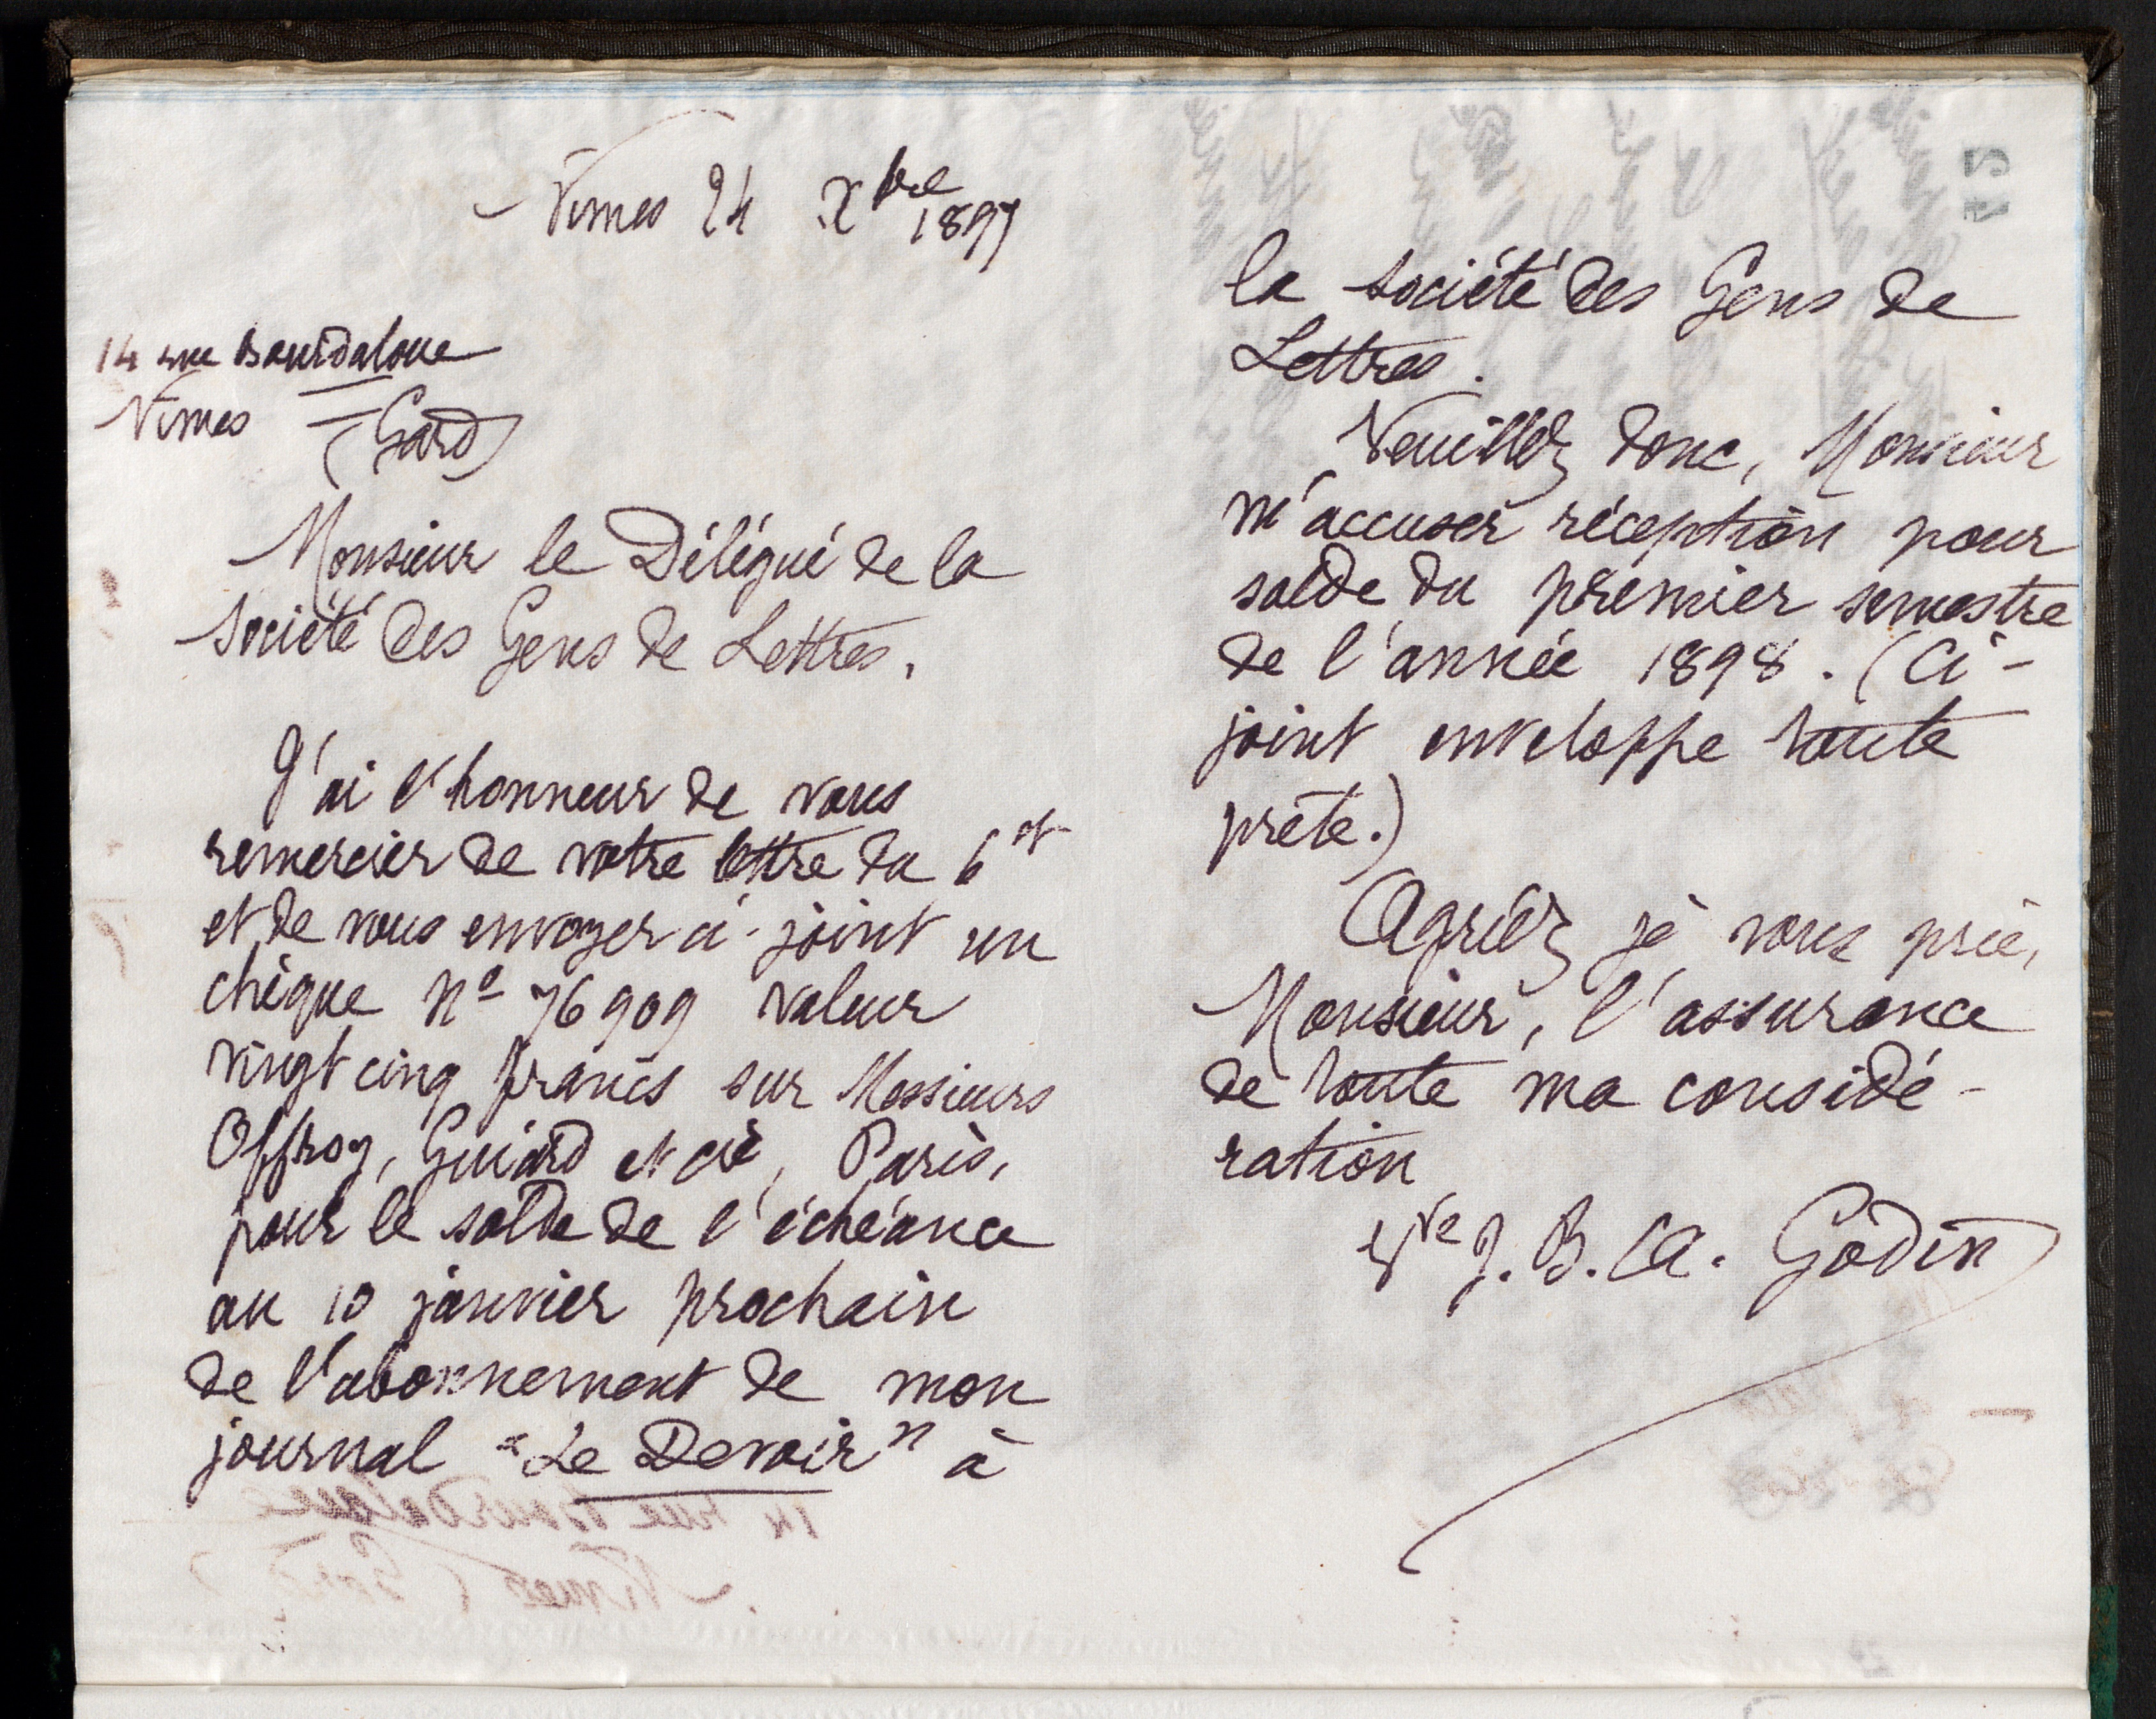 Nîmes 24 Xbre 1897
14 rue Bourdaloue
Nîmes (Gard)
Monsieur le Délégué de la
Société des Gens de Lettres,
J'ai l'honneur de vous
remercier de votre lettre du 6 ct
et de vous envoyer ci-joint un
chèque No 76909 valeur
vingt cinq francs sur Messieurs
Offroy, Guiard et Cie, Paris,
pour le solde de l'échéance
au 10 janvier prochain
de l'abonnement de mon
journal "Le Devoir" à
la Société des Gens de
Lettres.
Veuillez donc, Monsieur
m'accuser réception pour
solde du premier semestre
de l'année 1898. (Ci-
joint enveloppe toute
prête.)
Agréez je vous prie,
Monsieur, l'assurance
de toute ma considé-
ration
Vve J. B. A. Godin